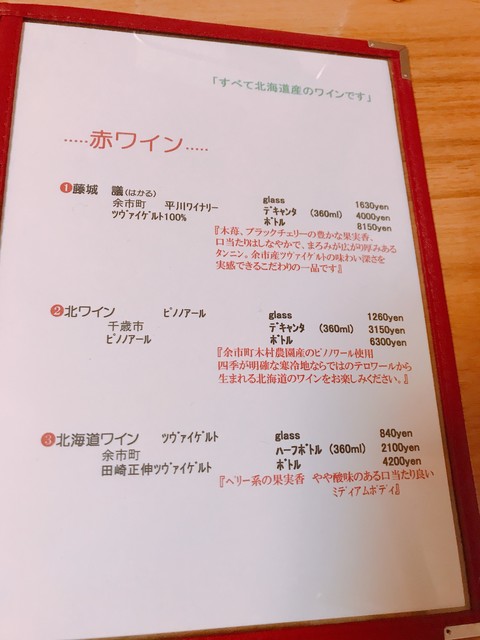 「すべて北海道産のワインです」
.....赤ワイン.....
❶藤城 議(はかる) glass 1630yen
余市町 平川ワイナリー デキャンタ (360ml) 4000yen
ツヴァイゲルト100% ボトル 8150yen
『木苺、ブラックチェリーの豊かな果実香、
口当たりはしなやかで、まろみが広がり厚みある
タンニン。余市産ツヴァイゲルトの味わい深さを
実感できるこだわりの一品です』
❷北ワイン ピノノアール glass 1260yen
千歳市 デキャンタ (360ml) 3150yen
ピノノアール ボトル 6300yen
『余市町木村農園産のピノノワール使用
四季が明確な寒冷地ならではのテロワールから
生まれる北海道のワインをお楽しみください。』
❸北海道ワイン ツヴァイゲルト glass 840yen
余市町 ハーフボトル (360ml) 2100yen
田崎正伸ツヴァイゲルト ボトル 4200yen
『ベリー系の果実香 やや酸味のある口当たり良い
ミディアムボディ』